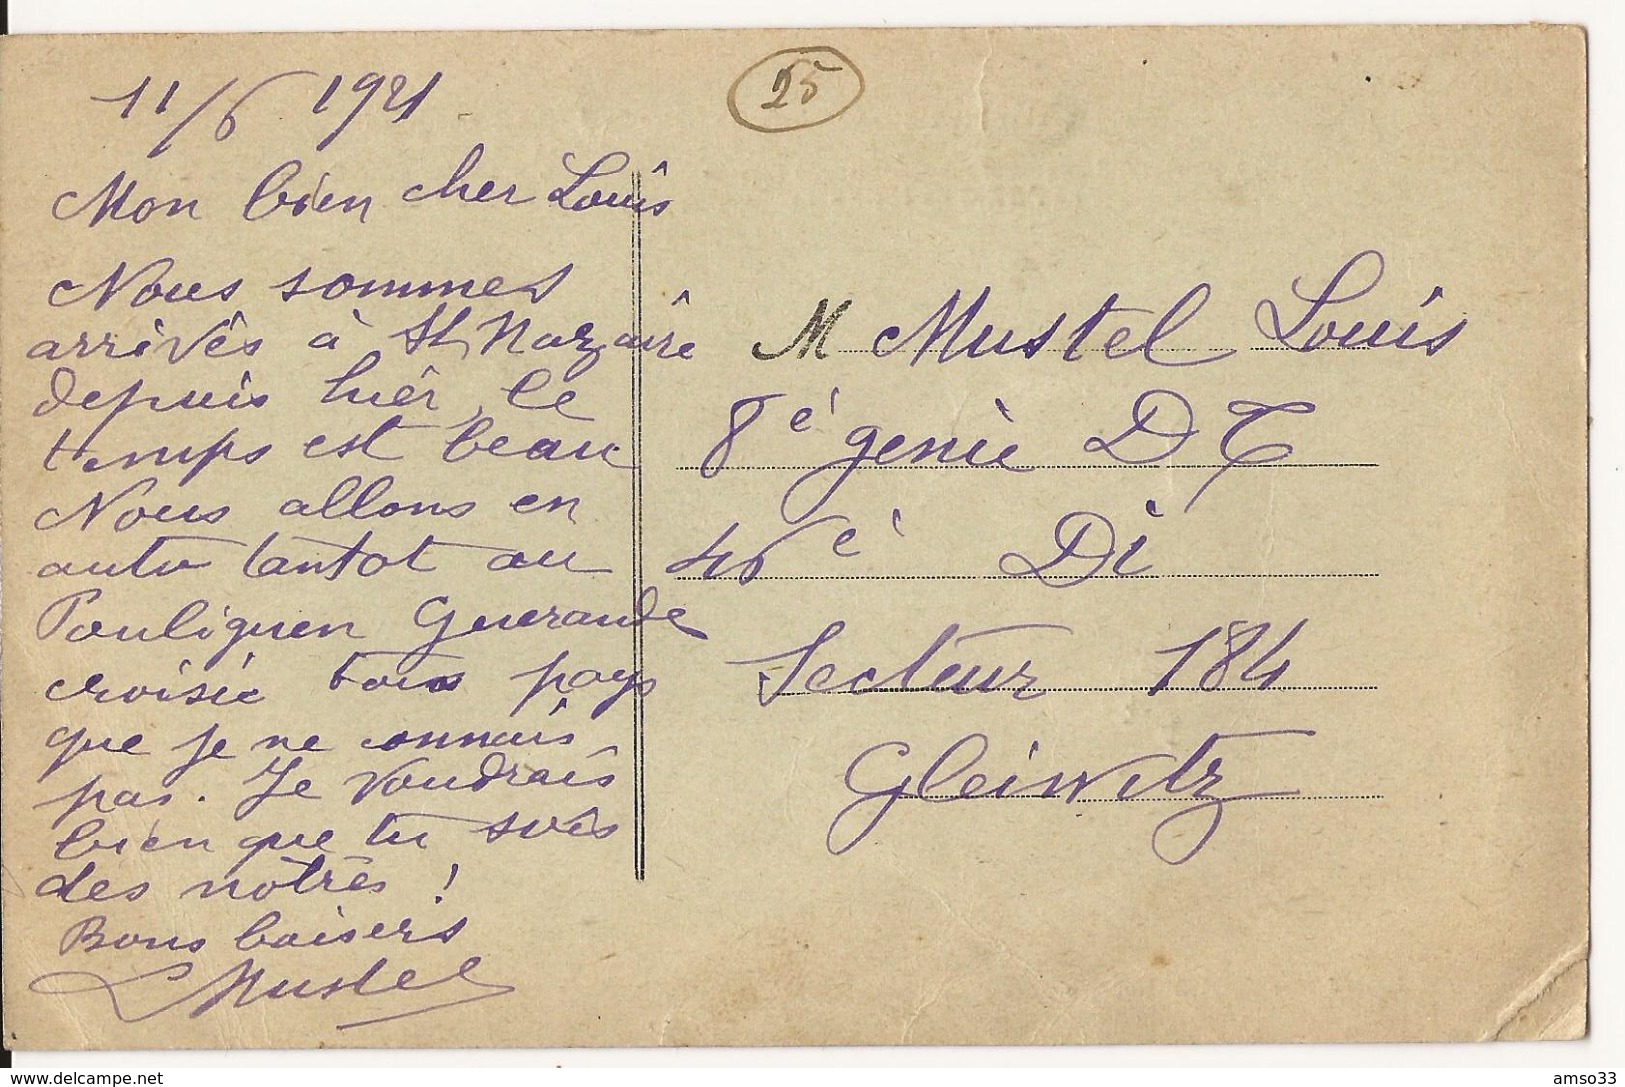 25
11/6 1921
Mon bien cher Louis
Nous sommes
arrivés à St Nazaire
depuis hier, le
temps est beau
Nous allons en
auto tantot au
Pouliguen Guerande
croisic tous pays
que je ne connais
pas. Je voudrais
bien que tu sois
des nôtres !
Bons baisers
L Mustel
M Mustel Louis
8e génie D T
46e Di
Secteur 184
Gleiwitz
www.delcampe.net
amso33